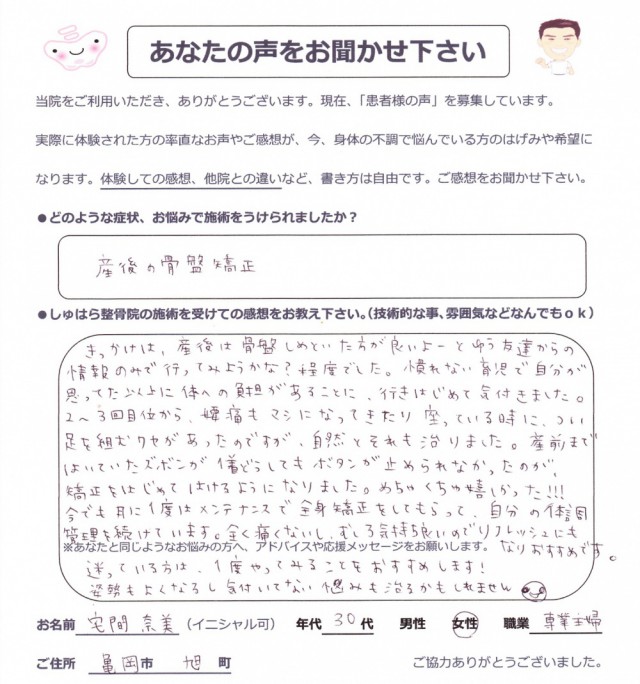 あなたの声をお聞かせ下さい
当院をご利用いただき、ありがとうございます。現在、「患者様の声」を募集しています。
実際に体験された方の率直なお声やご感想が、今、身体の不調で悩んでいる方のはげみや希望に
なります。体験しての感想、他院との違いなど、書き方は自由です。ご感想をお聞かせ下さい。
●どのような症状、お悩みで施術をうけられましたか?
産後の骨盤矯正
●しゅはら整骨院の施術を受けての感想をお教え下さい。(技術的な事、雰囲気などなんでもok)
きっかけは、産後は骨盤しめといた方が良いよーとゆう友達からの
情報のみで行ってみようかな?程度でした。慣れない育児で自分が
思ってたぶん上に体への負担があることに、行きはじめて気付きました。
2〜3回目位から、腰痛もマシになってきたり座っている時に、つい
足を組むクセがあったのですが、自然とそれも治りました。産前まで
はいていたズボンが着どうしてもボタンが止められなかったのが、
矯正をはじめてはけるようになりました。めちゃくちゃ嬉しかった!!!
今でも月に1度はメンテナンスで全身矯正をしてもらって、自分の体調
管理を続けています。全く痛くないし、むしろ気持ち良いのでリフレッシュにも
なりおすすめです。
※あなたと同じようなお悩みの方へ、アドバイスや応援メッセージをお願いします。
迷っている方は、1度やってみることをおすすめします!
姿勢もよくなるし気付いてない悩みも治るかもしれません
お名前 宅間 奈美 (イニシャル可) 年代 30代 男性 女性 職業 専業主婦
ご住所 亀岡市 旭 町 ご協力ありがとうございました。